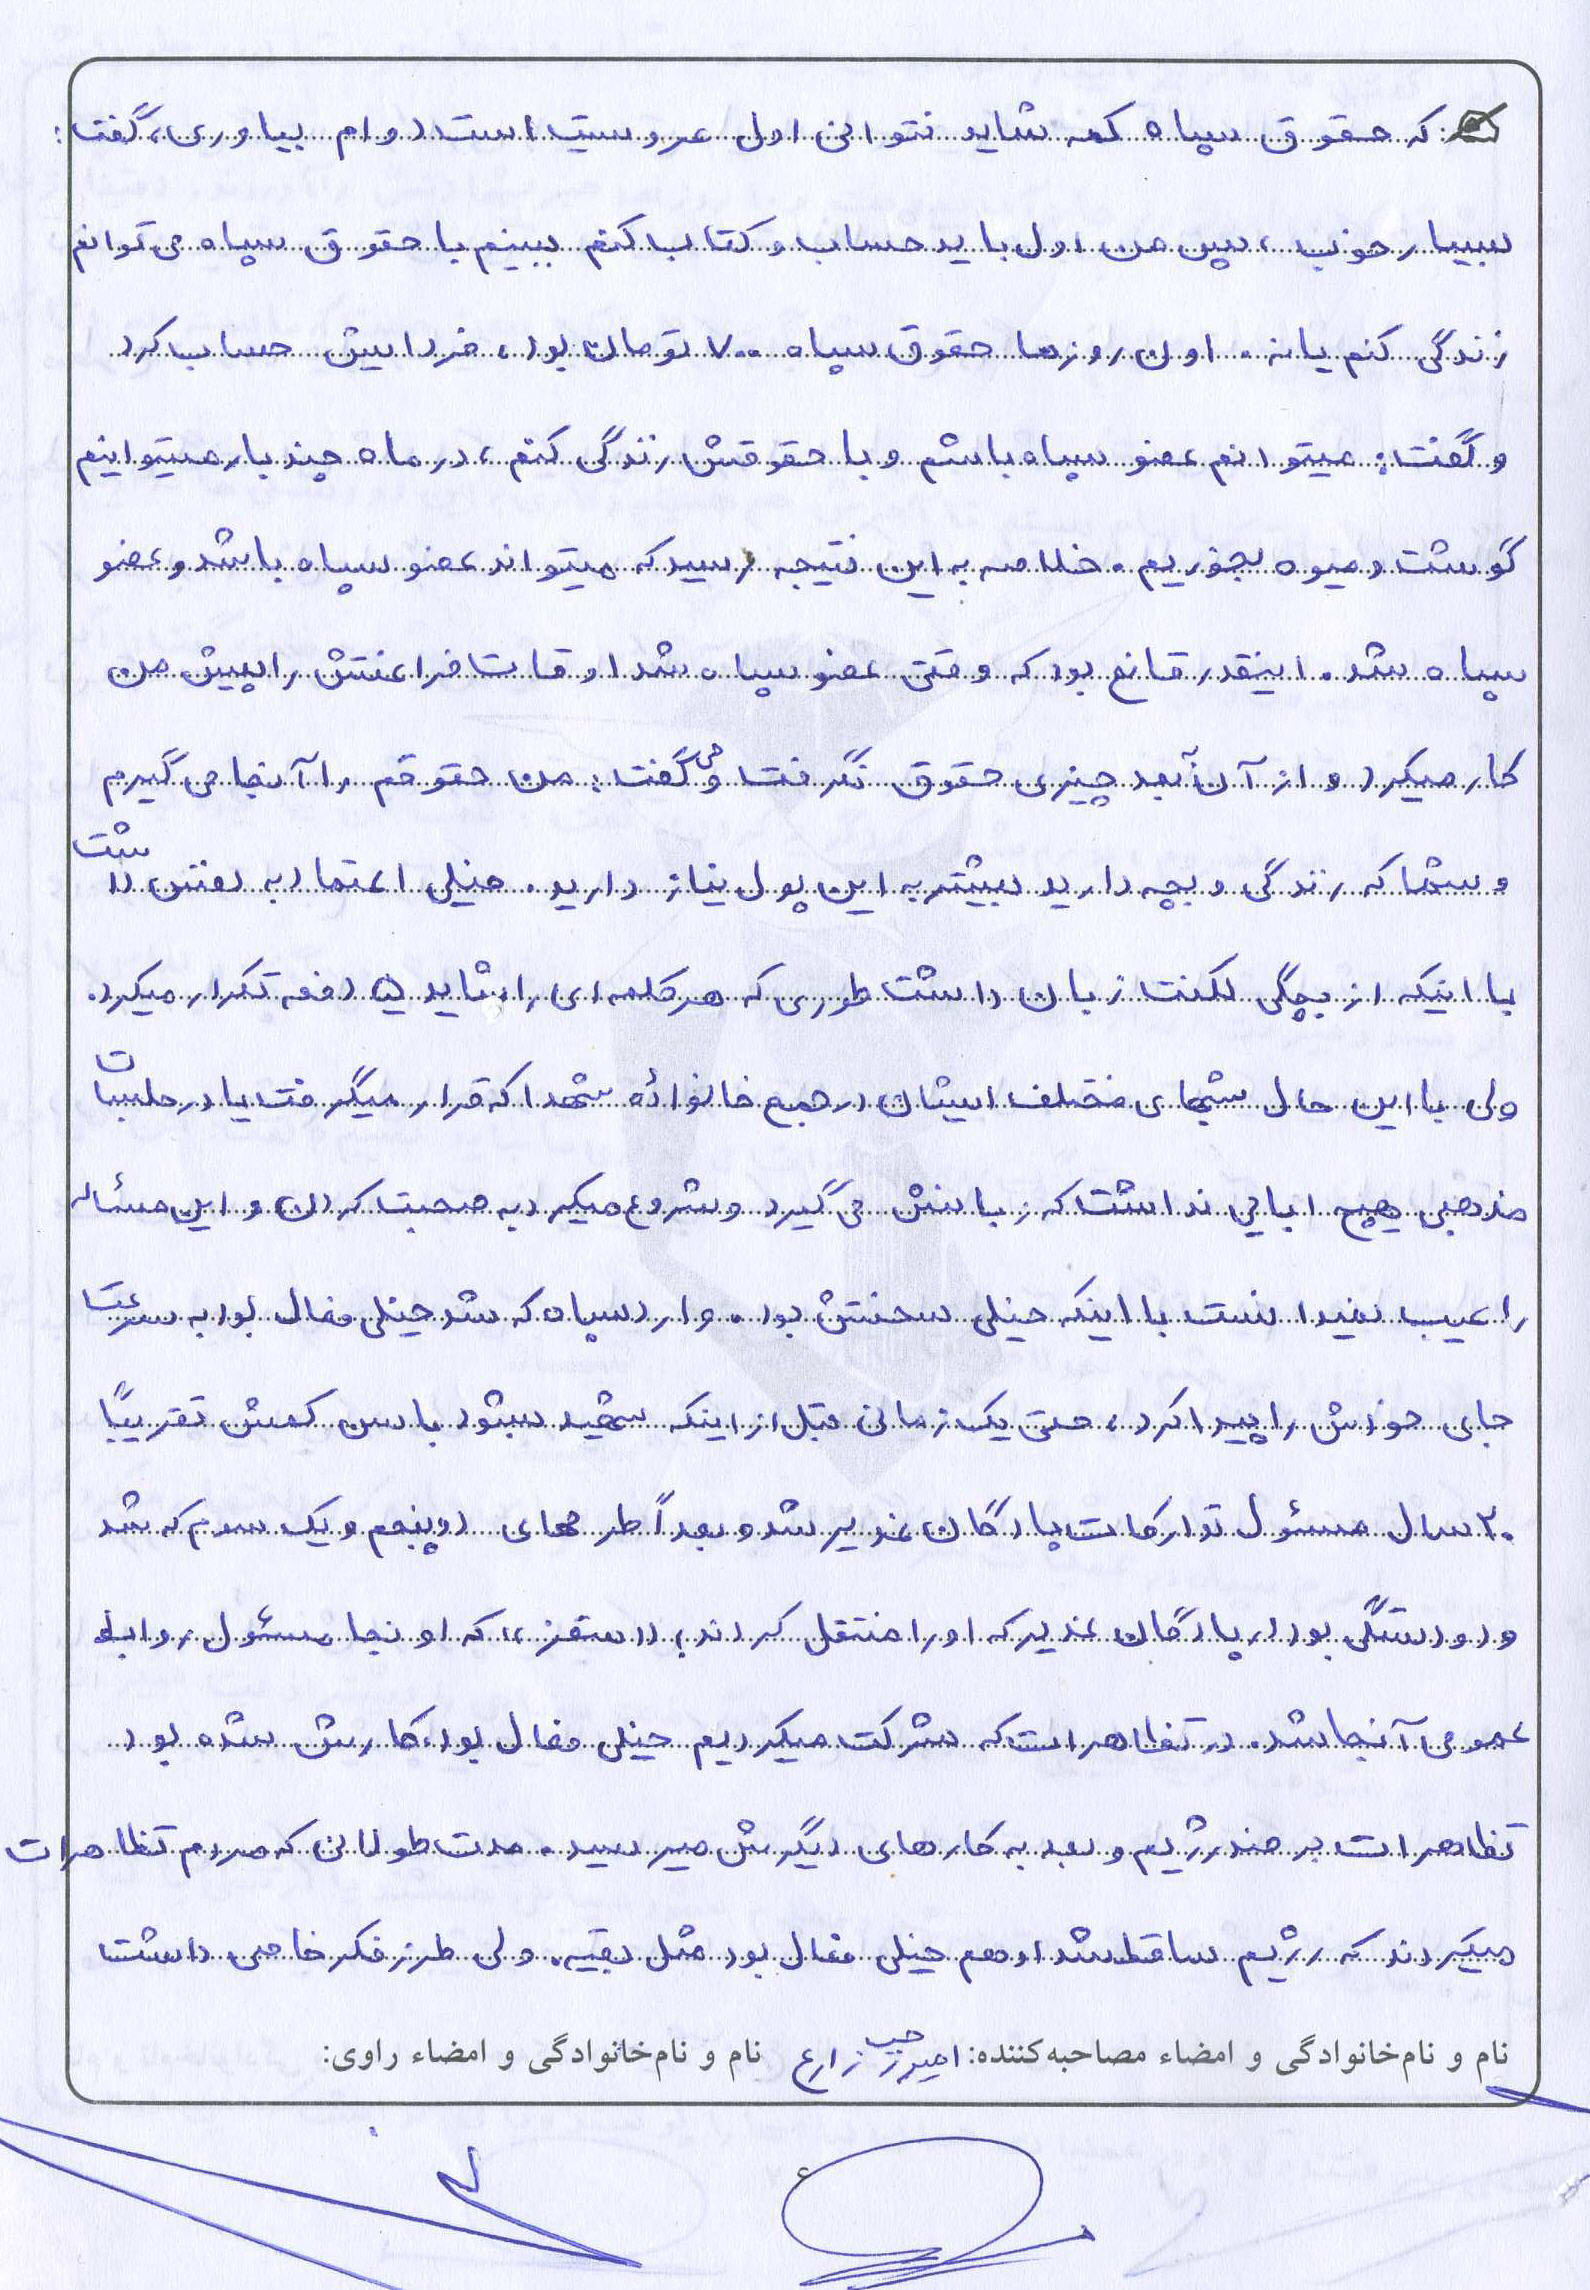 که حقوق سپاه کمه شاید نتوانی اول عروسیت است دوام بیاوری، گفت:
بسیار خوب، پس من اول باید حساب و کتاب کنم ببینم با حقوق سپاه می توانم
زندگی کنم یا نه. اون روزها حقوق سپاه ۷۰۰ تومان بود، فردایش حساب کرد
و گفت: میتوانم عضو سپاه باشم و با حقوقش زندگی کنم، در ماه چند بار میتوانیم
گوشت و میوه بخوریم. خلاصه به این نتیجه رسید که میتواند عضو سپاه باشد و عضو
سپاه شد. اینقدر قانع بود که وقتی عضو سپاه شد اوقات فراغتش را پیش من
کار میکرد و از آن به بعد چیزی حقوق نگرفت و می گفت: من حقوقم را آنجا می گیرم
و شما که زندگی و بچه دارید بیشتر به این پول نیاز دارید. خیلی اعتماد به نفس داشت
با اینکه از بچگی لکنت زبان داشت طوری که هر کلمه ای را شاید ۵ دفعه تکرار میکرد.
ولی با این حال شبهای مختلف ایشان در جمع خانواده شهدا که قرار میگرفت یا در جلسات
مذهبی هیچ ابایی نداشت که زبانش می گیرد و شروع میکرد به صحبت کردن و این مسأله
را عیب نمیدانست با اینکه خیلی سختش بود. وارد سپاه که شد خیلی فعال بود به سرعت
جای خودش را پیدا کرد، حتی یک زمانی قبل از اینکه شهید بشود با سن کمش تقریباً
۲۰ سال مسئول تدارکات پادگان غدیر شد و بعداً طرحهای دو پنجم و یک سوم که شد
و دودستگی بود در پادگان غدیر که او را منتقل کردند، سقز، که اونجا مسئول روابط
عمومی آنجا شد. در تظاهرات که شرکت میکردیم خیلی فعال بود، کارش شده بود
تظاهرات بر ضد رژیم و بعد به کارهای دیگرش میرسید. مدت طولانی که مردم تظاهرات
میکردند که رژیم ساقط شد او هم خیلی فعال بود مثل بقیه. ولی طرز فکر خاصی داشت
نام و نام‌خانوادگی و امضاء مصاحبه‌کننده: زارع نام و نام‌خانوادگی و امضاء راوی: